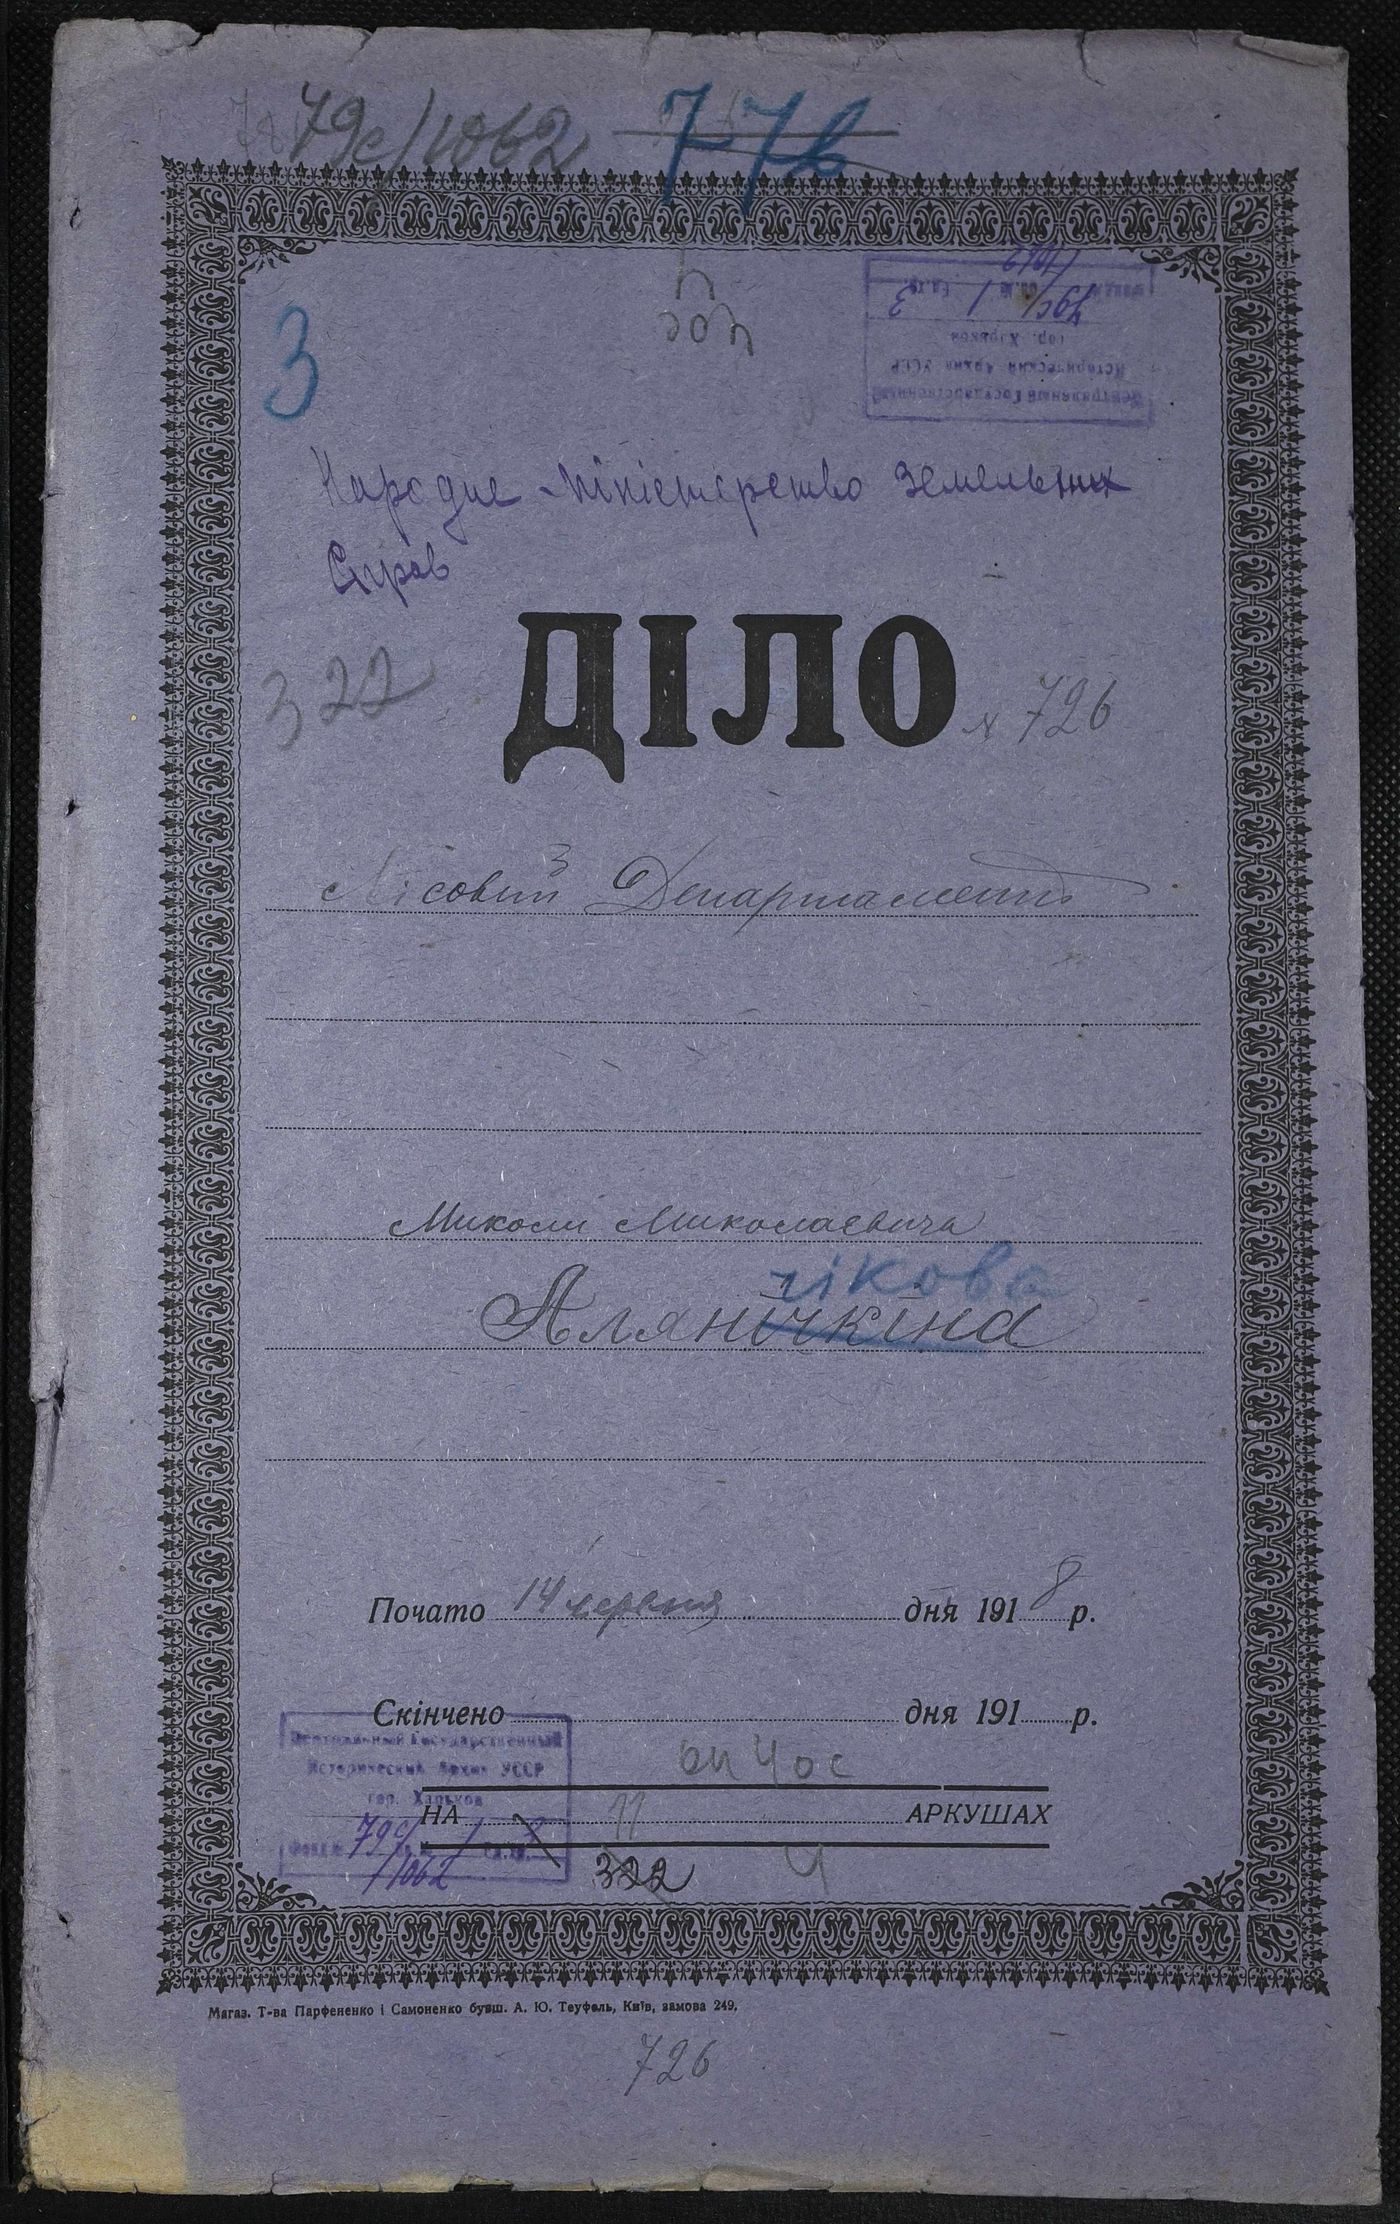 79с/1062 776
3
Центральный Государственный
Исторический Архив УССР
гор. Харьков
Фонд № 79с/1062 оп. № 1 Ед. хр. 3
Народне міністерство земельних
Справ
322
ДІЛО
№ 726
Лісовий Департамент
Миколи Миколаевича
чікова
Алянічкіна
Почато 14 червня дня 1918 р.
Скінчено дня 191 р.
Центральный Государственный
Исторический Архив УССР
гор. Харьков
Фонд № 79с/1062 оп. № 1 Ед. хр. 3
НА 11 АРКУШАХ
322 4
Магаз. Т-ва Парфененко і Самоненко бувш. А. Ю. Теуфель, Київ, замова 249.
726